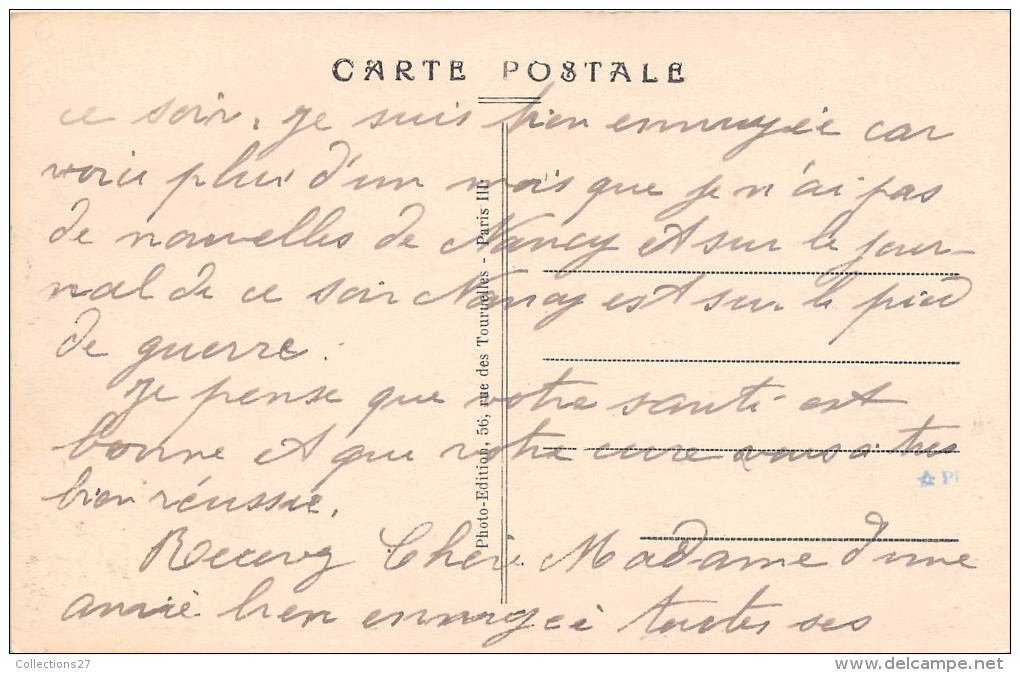 CARTE POSTALE
ce soir, je suis bien ennuyée car
voici plus d'un mois que je n'ai pas
de nouvelles de Nancy et sur le jour-
nal de ce soir Nancy est sur le pied
de guerre.
Je pense que votre santé est
bonne et que votre cure vous a très
bien réussie.
Recevez Chère Madame d'une
amie bien ennuyée toutes ses
Photo-Edition, 56, rue des Tournelles - Paris III
Collections27
delcampe.net